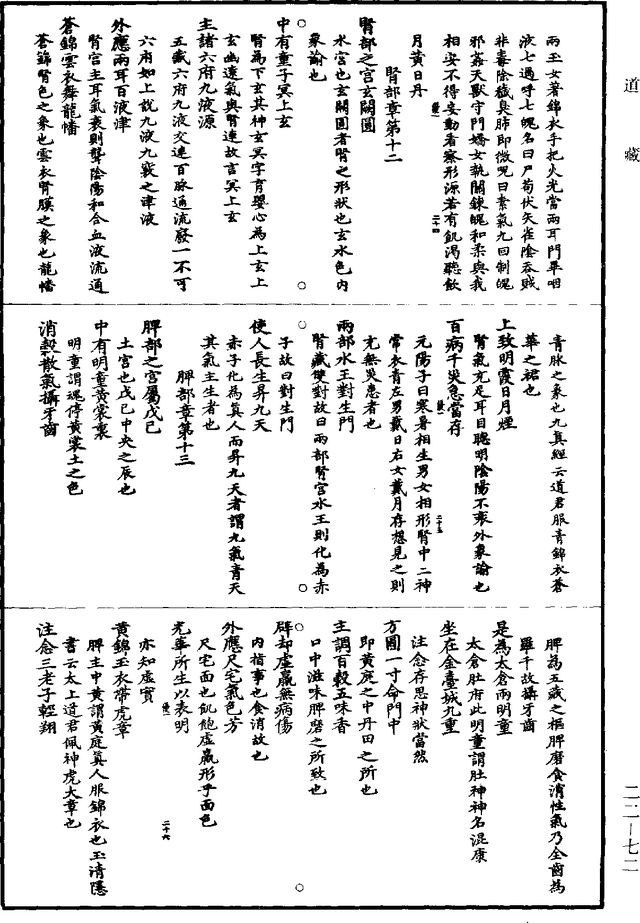 道藏
兩玉女著錦衣手把火光當兩耳門畢咽
液七過呼七魄名曰尸苟伏矢雀陰吞賊
非毒除穢臭肺即微呪曰素氣九回制魄
邪姦天獸守門嬌女執關鍊魄和柔與我
相安不得妄動看察形源若有飢渴聽飲
月黃日丹
二十四
腎部章第十二
腎部之宮玄闕圓
水宮也玄闕圓者腎之形狀也玄水色内
象諭也
中有童子冥上玄
腎為下玄其神玄冥字育嬰心為上玄上
玄幽遠氣與腎連故言冥上玄
主諸六府九液源
五藏六府九液交連百脉通流廢一不可
六府如上說九液九竅之津液
外應兩耳百液津
腎宮主耳氣衰則聾陰陽和合血液流通
蒼錦雲衣舞龍幡
蒼錦腎色之象也雲衣腎膜之象也龍幡
青脉之象也九真經云道君服青錦衣蒼
華之裙也
上致明霞日月煙
腎氣充足耳目聰明陰陽不衰外象諭也
百病千災急當存
二十五
元陽子曰寒暑相生男女相形腎中二神
常衣青左男戴日右女戴月存想見之則
充無災患者也
兩部水王對生門
腎藏雙對故曰兩部腎宮水王則化為赤
子故曰對生門
使人長生昇九天
赤子化為真人而昇九天者謂九氣青天
其氣主生者也
脾部章第十三
脾部之宮屬戊己
土宮也戊己中央之辰也
中有明童黃裳裏
明童謂魂停黃裳土之色
消穀散氣攝牙齒
脾為五藏之樞脾磨食消性氣乃全齒為
羅千故攝牙齒
是為太倉兩明童
太倉肚府此明童謂肚神神名混康
坐在金臺城九重
注念存思神狀當然
方圓一寸命門中
即黃庭之中丹田之所也
主調百穀五味香
口中滋味脾磨之所致也
辟却虛羸無病傷
内指事也食消故也
外應尺宅氣色芳
尺宅面也飢飽虛羸形乎面色
光華所生以表明
二十六
亦知虛實
黃錦玉衣帶虎章
脾主中黃謂黃庭真人服錦衣也玉清隱
書云太上道君佩神虎大章也
注念三老子輕翔
二二—七二